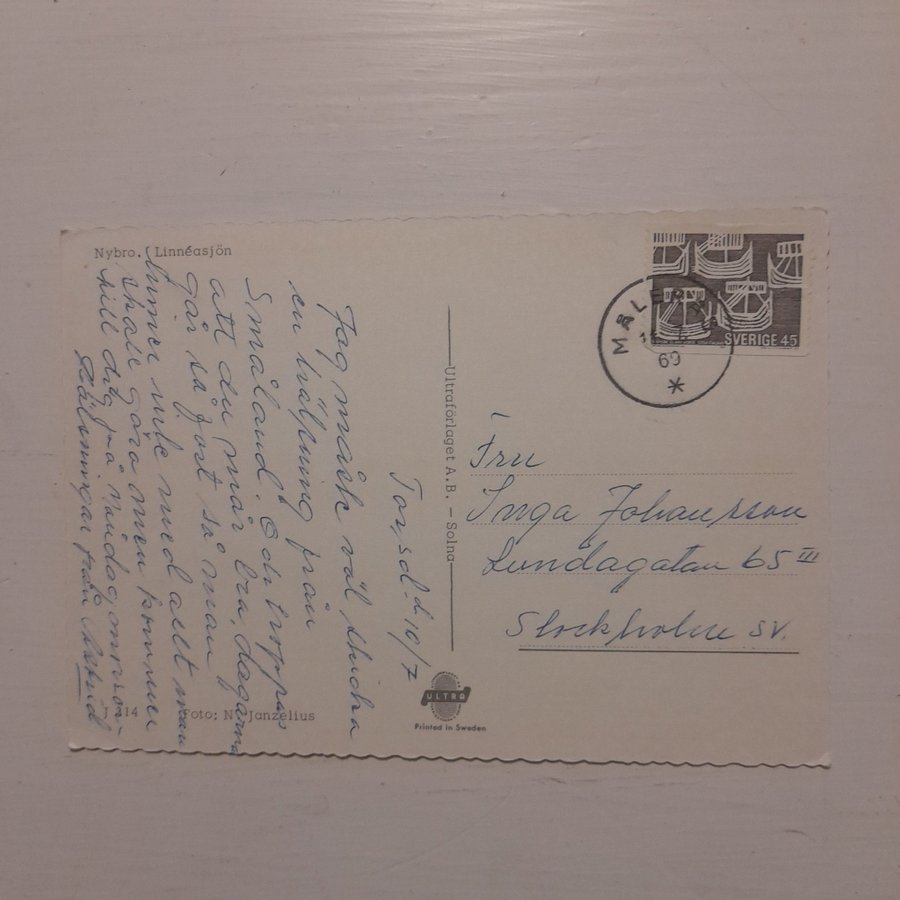 Nybro. Linnéasjön
Torsd. d 10/7
Jag måste väl skicka
en hälsning från
Småland. Och hoppas
att du mår bra, dagarna
går så fort så man
hinner inte med allt man
skall göra men kommer
till dig på måndag
Hälsningar från Astrid
J 314
Foto: N. Janzelius
Ultraförlaget A.B. - Solna
ULTRA
Printed in Sweden
SVERIGE 45
69
Fru
Inga Johansson
Lundagatan 65 III
Stockholm SV.